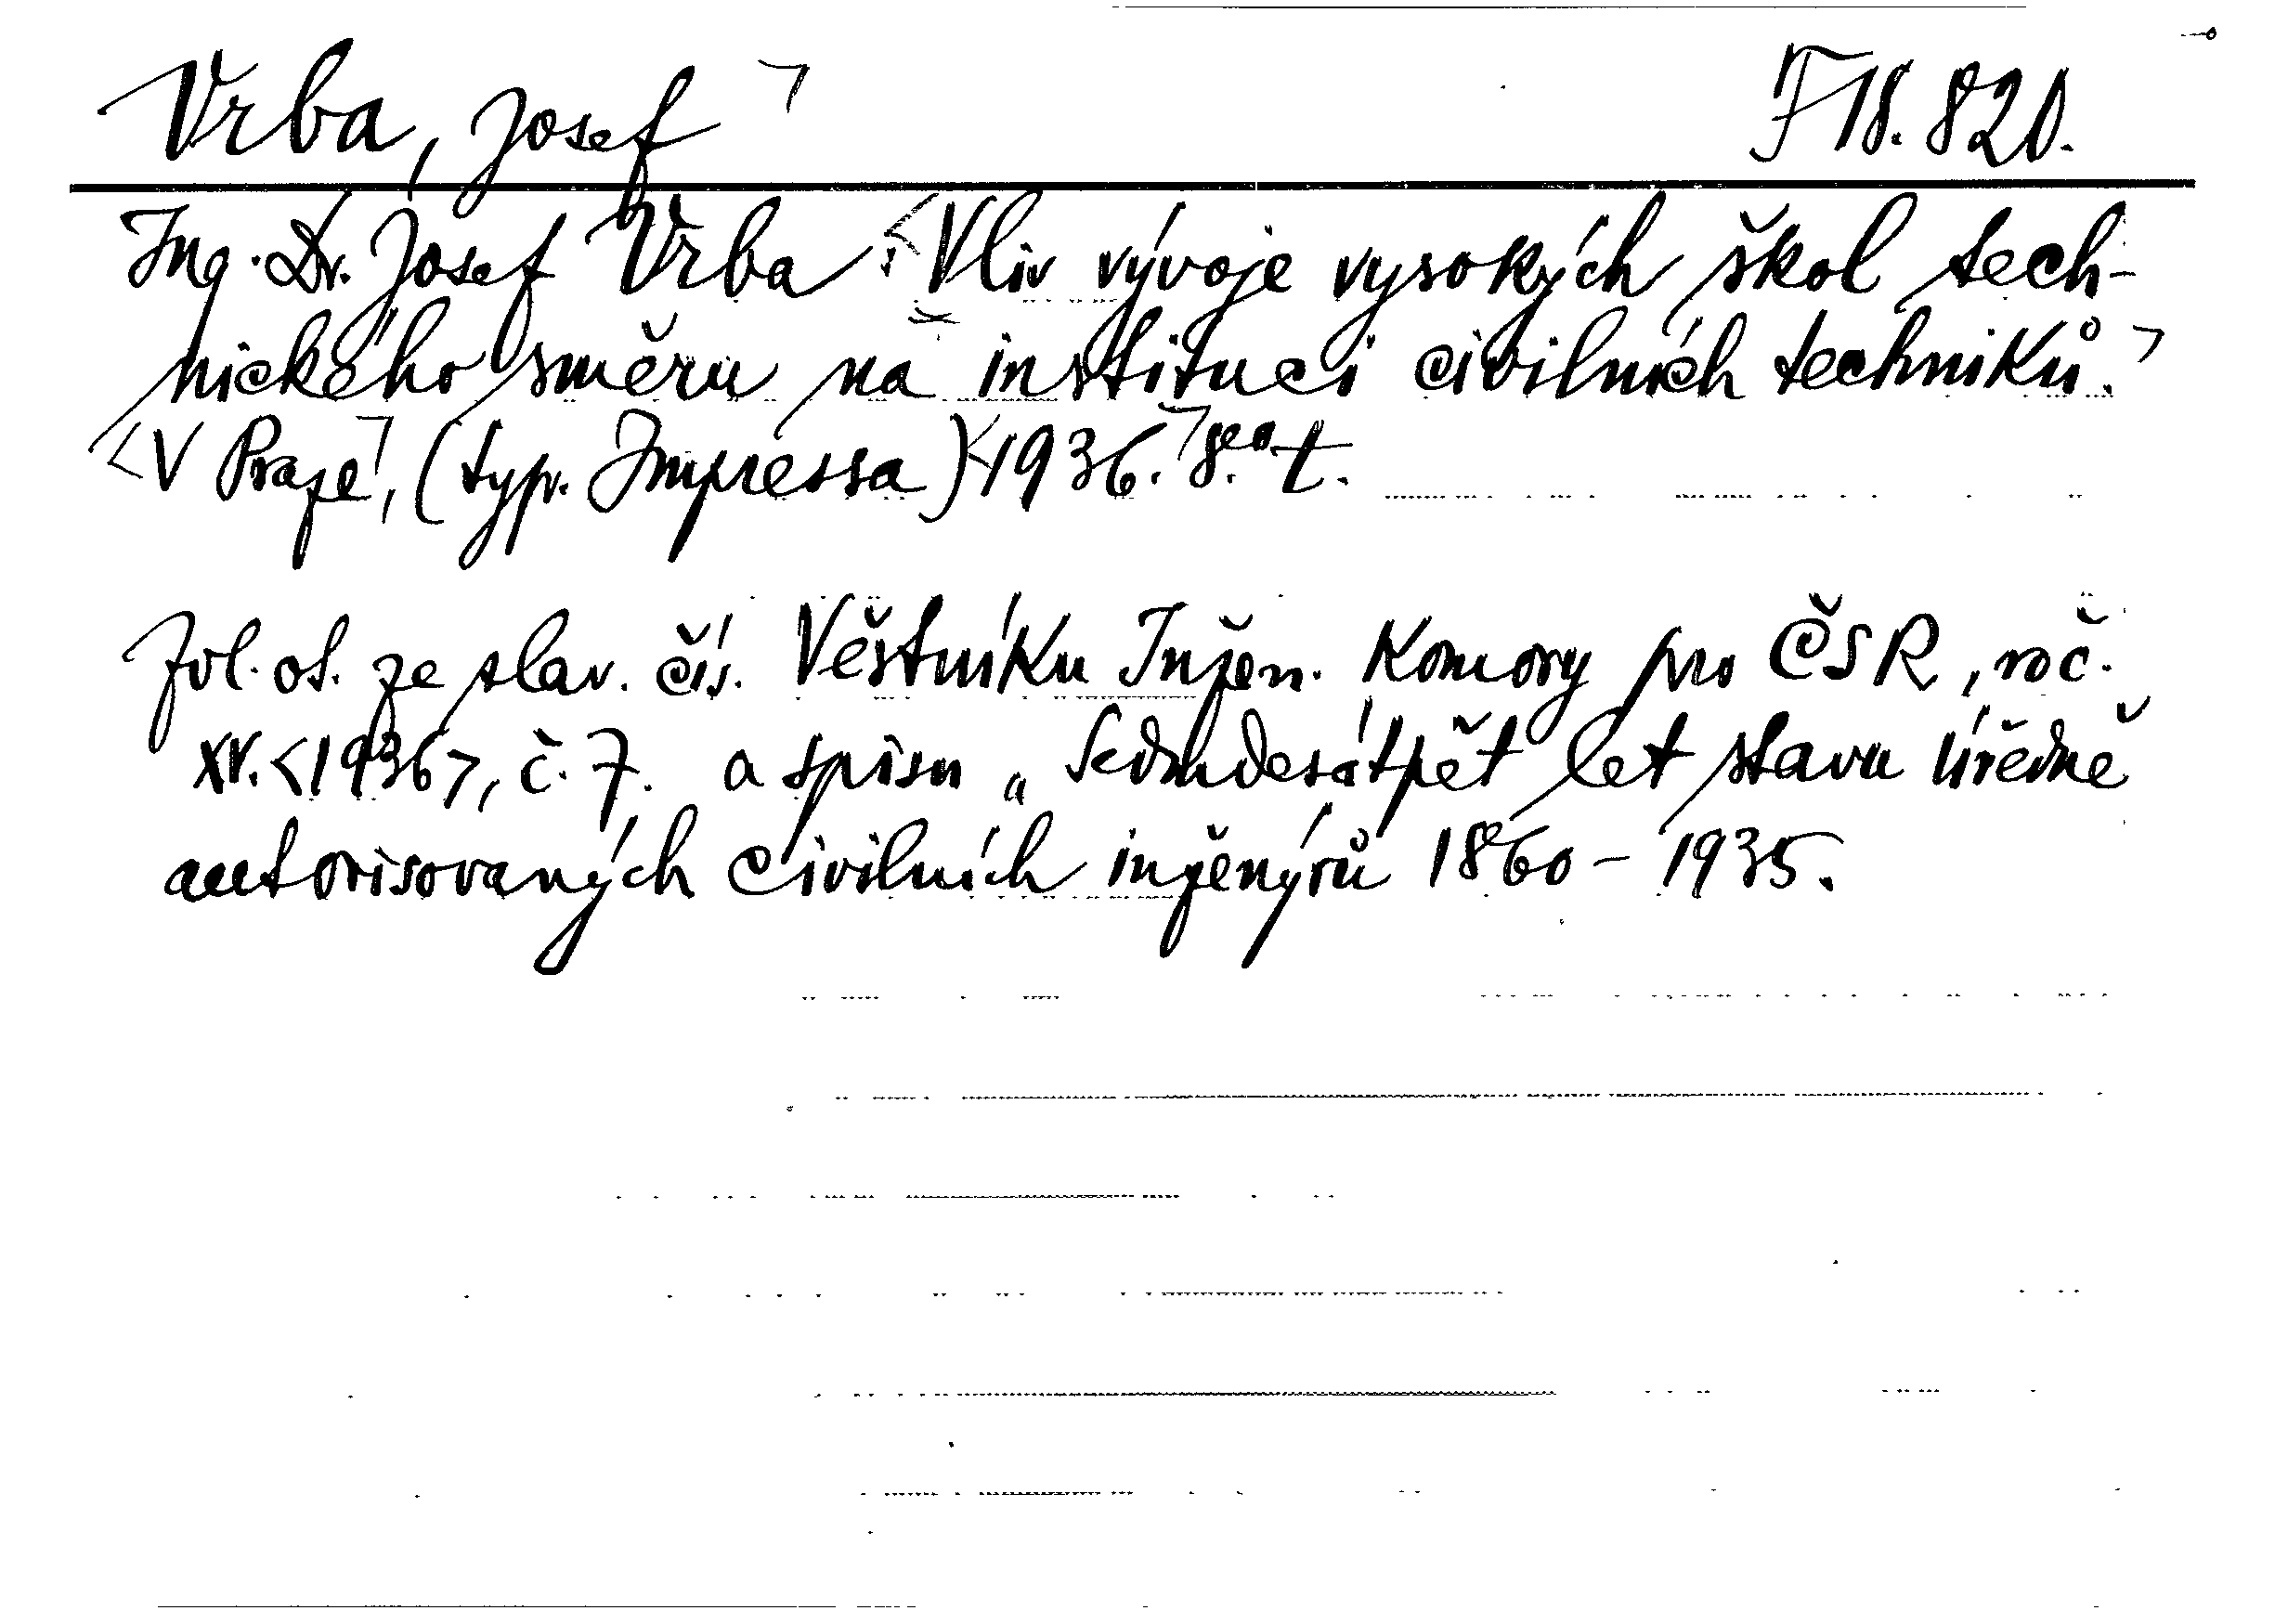 Vrba, Josef ⌝ F 18.820.
Ing. Dr. Josef Vrba: <Vliv vývoje vysokých škol tech-
nického směru na instituci civilních techniků.⌝
<V Praze⌝, (typ. Impressa) <1936.⌝ 8.° t.
Zvl. ot. ze slav. čís. Věstníku Inžen. Komory pro ČSR, roč.
XV. <1936>, č. 7. a spisu „Sedmdesátpět let stavu úředně
autorisovaných civilních inženýrů 1860 - 1935.